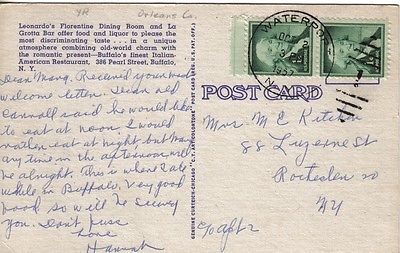 YR
Orleans Co.
Leonardo's Florentine Dining Room and La
Grotta Bar offer food and liquor to please the
most discriminating taste . . . in a unique
atmosphere combining old-world charm with
the romantic present—Buffalo's finest Italian-
American Restaurant, 386 Pearl Street, Buffalo,
N. Y.
Dear Marg, Received your
welcome letter.
said he would like
to eat at noon. I would
rather eat at night but
any time in the afternoon will
be alright. This is where I ate
while in Buffalo. Very good
food so will be seeing
you. Don't fuss
Love
Hannah
GENUINE CURTEICH-CHICAGO "C.T. ART-COLORTONE" POST CARD (REG. U.S. PAT. OFF.)
WATERPORT
N.Y.
POST CARD
Mrs. M E
88 Luzerne St
Rochester 20
NY
c/o Apt 2